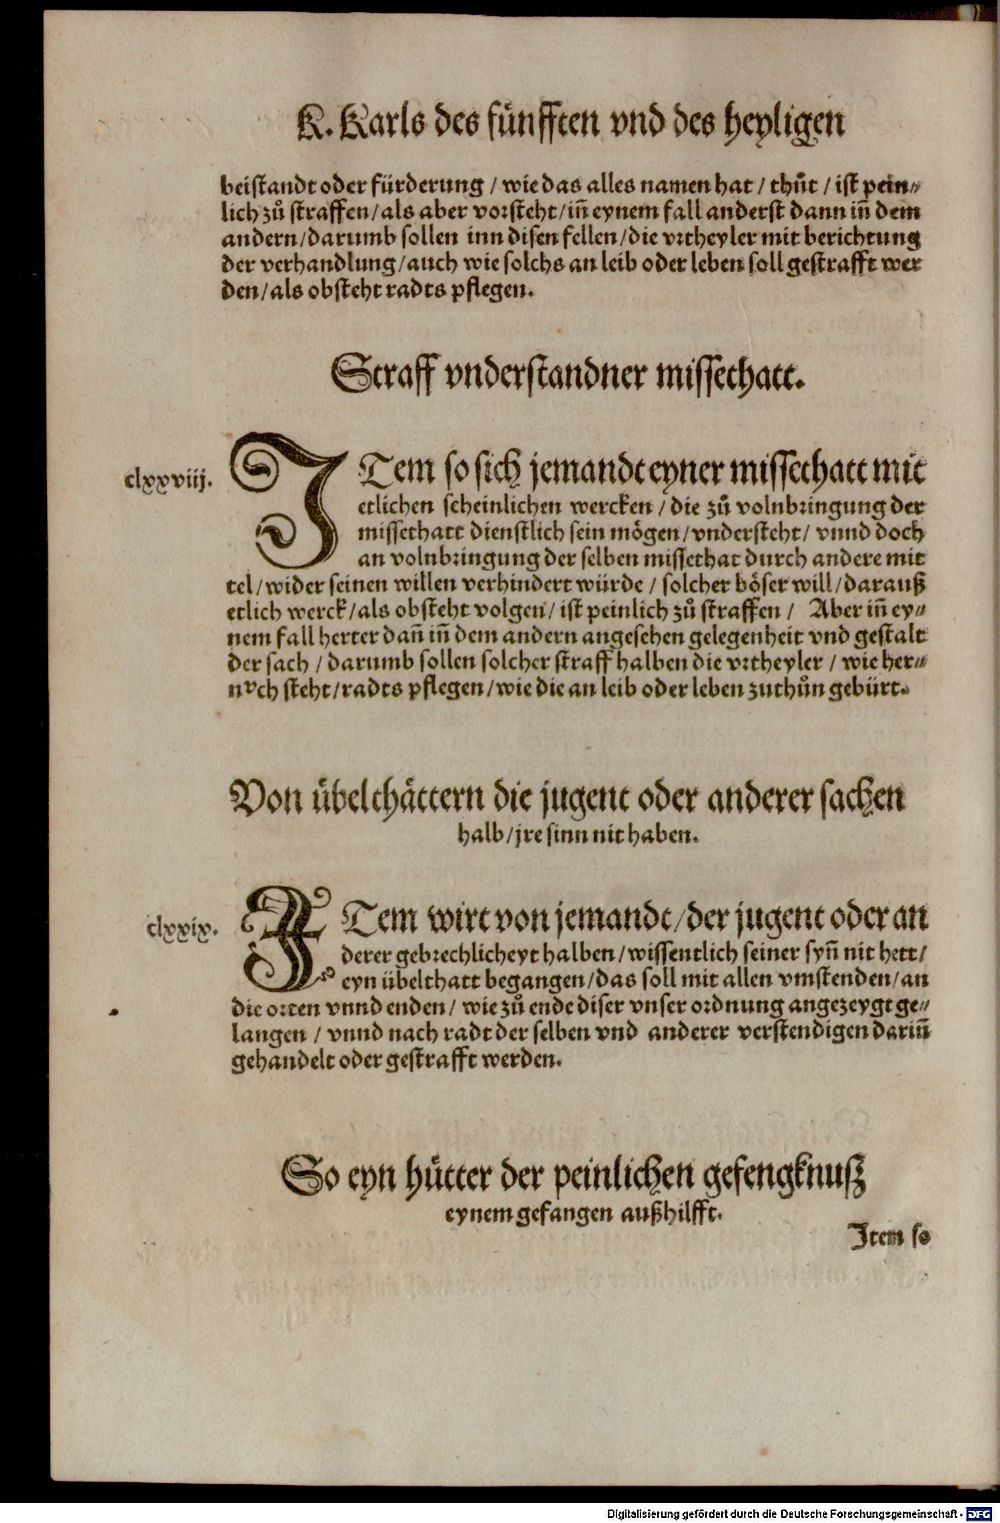 K. Karls des fünfften vnd des heyligen
beistandt oder fürderung / wie das alles namen hat / thůt / ist pein⸗
lich zů straffen / als aber vorsteht / iñ eynem fall anderst dann iñ dem
andern / darumb sollen inn disen fellen / die vrtheyler mit berichtung
der verhandlung / auch wie solchs an leib oder leben soll gestrafft wer
den / als obsteht radts pflegen.
Straff vnderstandner missethatt.
clxxviij.
ITem so sich jemandt eyner missethatt mit
etlichen scheinlichen wercken / die zů volnbringung der
missethatt dienstlich sein mögen / vndersteht / vnnd doch
an volnbringung der selben missethat durch andere mit
tel / wider seinen willen verhindert würde / solcher böser will / darauß
etlich werck / als obsteht volgen / ist peinlich zů straffen / Aber iñ ey⸗
nem fall herter dañ iñ dem andern angesehen gelegenheit vnd gestalt
der sach / darumb sollen solcher straff halben die vrtheyler / wie her⸗
noch steht / radts pflegen / wie die an leib oder leben zuthůn gebürt.
Von übelthättern die jugent oder anderer sachen
halb / jre sinn nit haben.
clxxix.
ITem wirt von jemandt / der jugent oder an
derer gebrechlicheyt halben / wissentlich seiner syñ nit hett /
eyn übelthatt begangen / das soll mit allen vmstenden / an
die orten vnnd enden / wie zů ende diser vnser ordnung angezeygt ge⸗
langen / vnnd nach radt der selben vnd anderer verstendigen dariñ
gehandelt oder gestrafft werden.
So eyn hütter der peinlichen gefengknuß
eynem gefangen außhilfft.
Item so
Digitalisierung gefördert durch die Deutsche Forschungsgemeinschaft - DFG